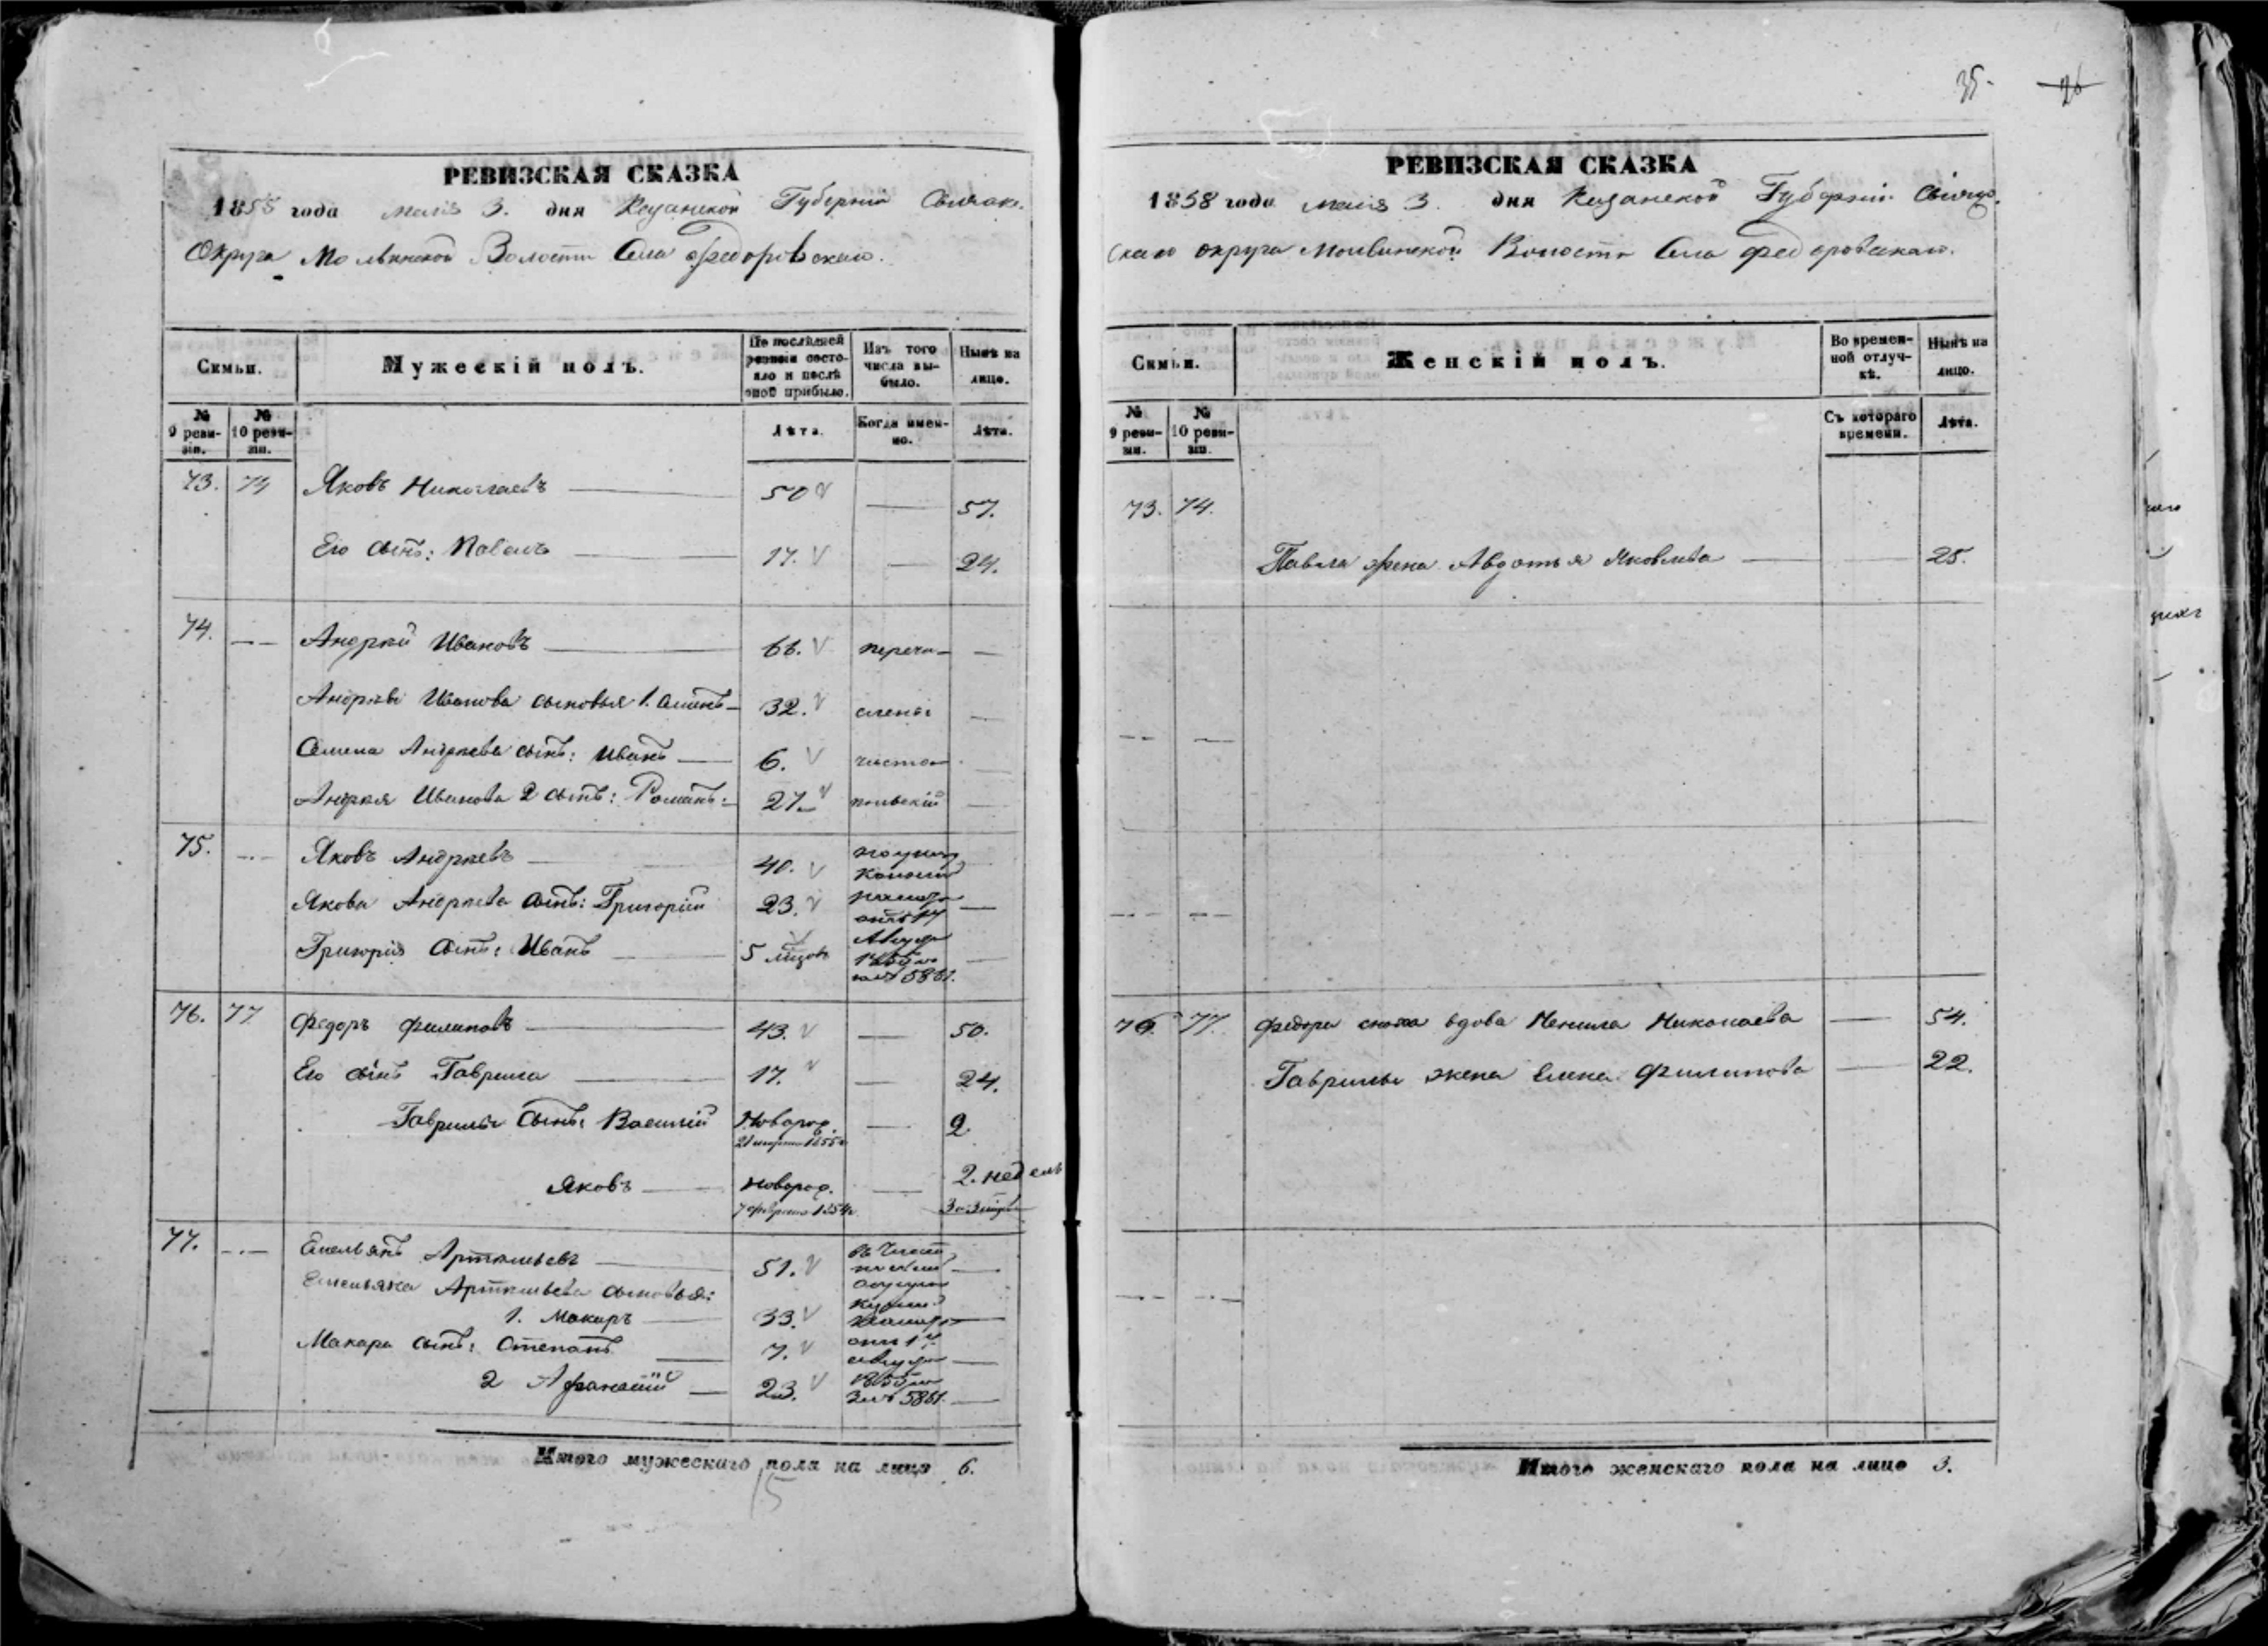 35. 26
РЕВИЗСКАЯ СКАЗКА
1858 года маія 3. дня Казанской Губерніи Свіяжс.
Округа Мольвинской Волости Села Федоровскаго.
Семьи.
Мужескій полъ.
По послѣдней ревизіи состояло и послѣ оной прибыло.
Изъ того числа выбыло.
Нынѣ на лицо.
№ 9 ревизіи.
№ 10 ревизіи.
Лѣта.
Когда именно.
Лѣта.
73. 74 Яковъ Николаевъ 50 57.
Его сынъ: Павелъ 17. 24.
74. Андрей Ивановъ 66. перечи-
Андрея Иванова сыновья 1. Семенъ 32. слены
Семена Андреева сынъ: Иванъ 6. чисто-
Андрея Иванова 2 сынъ: Романъ: 27. польскій
75. Яковъ Андреевъ 40.
Якова Андреева сынъ: Григорій 23.
Григорія сынъ: Иванъ 5 мѣсцовъ
5861.
76. 77 Федоръ Филиповъ 43. 50.
Его сынъ Гаврила 17. 24.
Гаврилы сынъ: Василій Новорож. 2
21 марта 1855
Яковъ Новорож. 2. недель
7 февраля
77. Емельянъ Артемьевъ 51.
Емельяна Артемьева сыновья:
1. Макаръ 33.
Макара сынъ: Степанъ 7.
2 Афанасій 23.
За № 5861.
Итого мужескаго пола на лицо 6.
15
РЕВИЗСКАЯ СКАЗКА
1858 года маія 3. дня Казанской Губерніи Свіяж-
скаго округа Мольвинской Волости Села Федоровскаго.
Семьи.
Женскій полъ.
Во временной отлучкѣ.
Нынѣ на лицо.
№ 9 ревизіи.
№ 10 ревизіи.
Съ котораго времени.
Лѣта.
73. 74.
Павла жена Авдотья Яковлева 25.
76. 77. Федора сноха вдова Ненила Николаева 54.
Гаврилы жена Елена Филипова 22.
Итого женскаго пола на лицо 3.